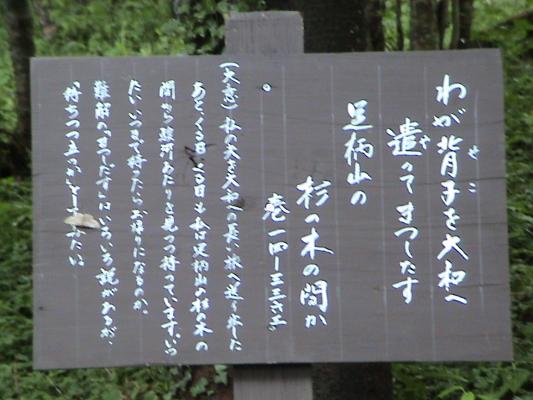 わが背子を大和へ
せこ
遣りてまつしたす
や
足柄山の
杉の木の間か
巻一四ー三三六三
(大意)私の夫を大和への長い旅へ送り出した
あと、くる日も日も私は足柄山の杉の木の
間から駿河あたりを見つつ待っています。いっ
たいいつまで待ったらお帰りになるのか。
難解の「まつしたす」はいろいろ説があるが、
「待ちつつ立つか」としたい。